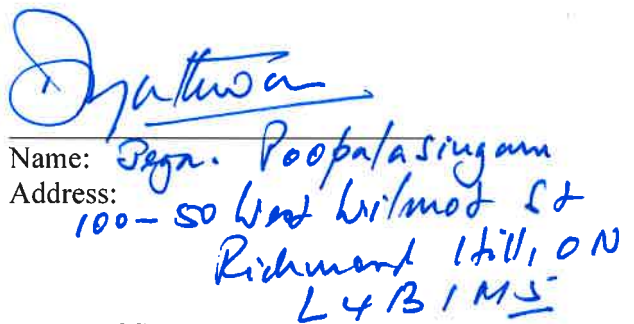 Name: Jega. Poopalasingam
Address:
100-50 West Wilmot St
Richmond Hill, ON
L4B 1M5